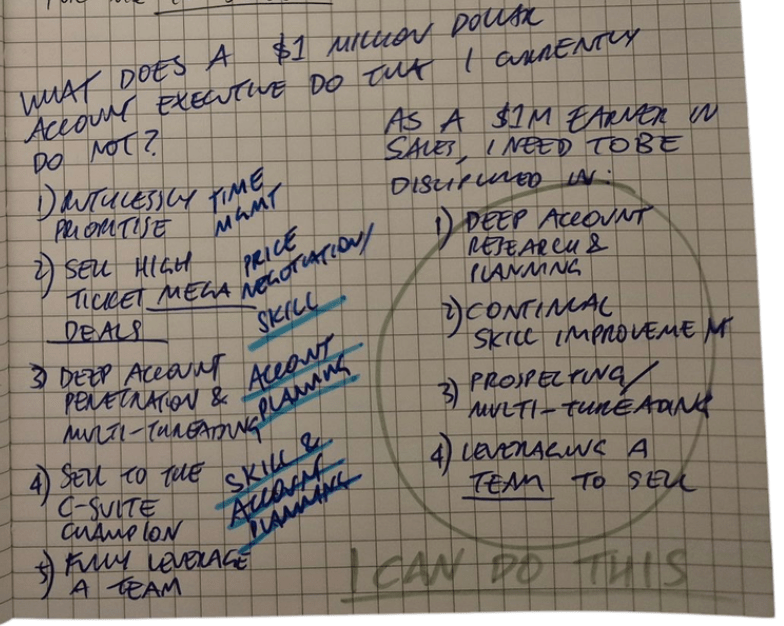 WHAT DOES A $1 MILLION DOLLAR
ACCOUNT EXECUTIVE DO THAT I CURRENTLY
DO NOT?
1) RUTHLESSLY PRIORITISE
TIME MGMT
2) SELL HIGH
TICKET MEGA
DEALS
PRICE
NEGOTIATION/
SKILL
3) DEEP ACCOUNT
PENETRATION &
MULTI-THREADING
ACCOUNT
PLANNING
4) SELL TO THE
C-SUITE
CHAMPION
SKILL &
ACCOUNT
PLANNING
5) FULLY LEVERAGE
A TEAM
AS A $1M EARNER IN
SALES, I NEED TO BE
DISCIPLINED IN:
1) DEEP ACCOUNT
RESEARCH &
PLANNING
2) CONTINUAL
SKILL IMPROVEMENT
3) PROSPECTING/
MULTI-THREADING
4) LEVERAGING A
TEAM TO SELL
I CAN DO THIS